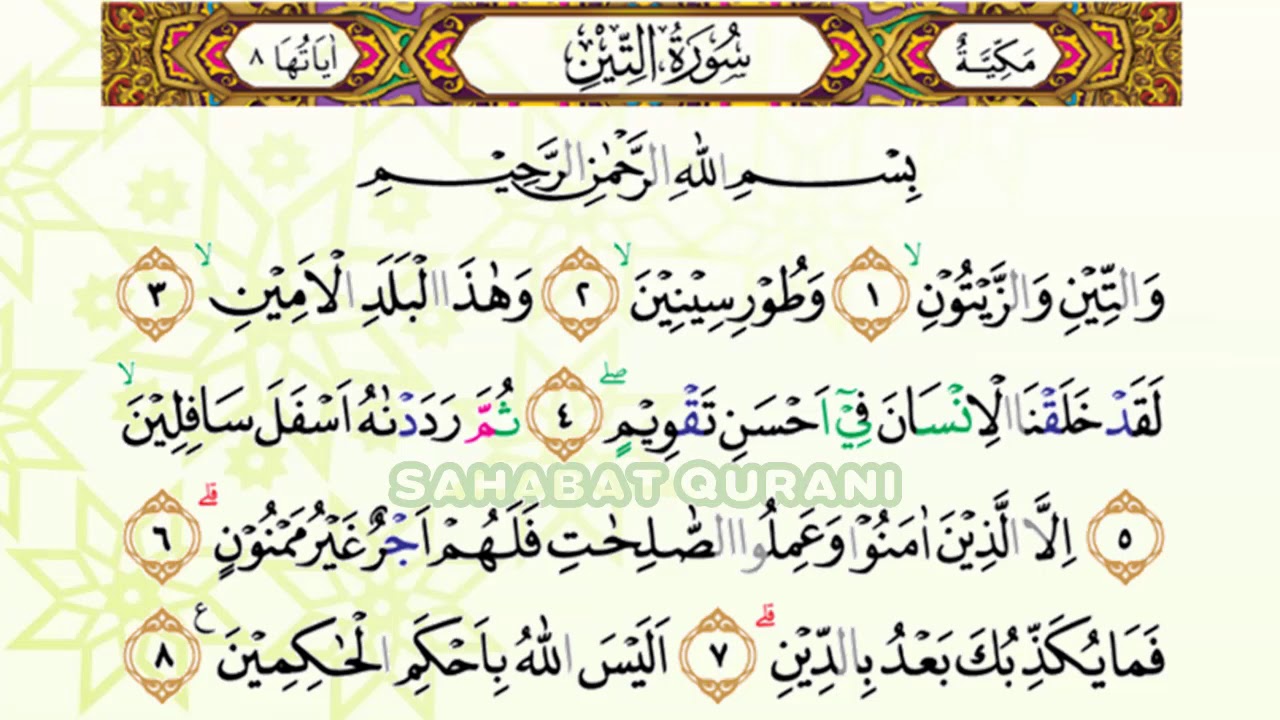 مَكِّيَّةٌ سُوْرَةُ التِّيْنِ اٰيَاتُهَا ٨
بِسْمِ اللّٰهِ الرَّحْمٰنِ الرَّحِيْمِ
وَالتِّيْنِ وَالزَّيْتُوْنِۙ ١ وَطُوْرِ سِيْنِيْنَۙ ٢ وَهٰذَا الْبَلَدِ الْاَمِيْنِۙ ٣
لَقَدْ خَلَقْنَا الْاِنْسَانَ فِيْٓ اَحْسَنِ تَقْوِيْمٍۖ ٤ ثُمَّ رَدَدْنٰهُ اَسْفَلَ سَافِلِيْنَۙ
SAHABAT QURANI
٥ اِلَّا الَّذِيْنَ اٰمَنُوْا وَعَمِلُوا الصّٰلِحٰتِ فَلَهُمْ اَجْرٌ غَيْرُ مَمْنُوْنٍۗ ٦
فَمَا يُكَذِّبُكَ بَعْدُ بِالدِّيْنِۗ ٧ اَلَيْسَ اللّٰهُ بِاَحْكَمِ الْحٰكِمِيْنَ ع ٨